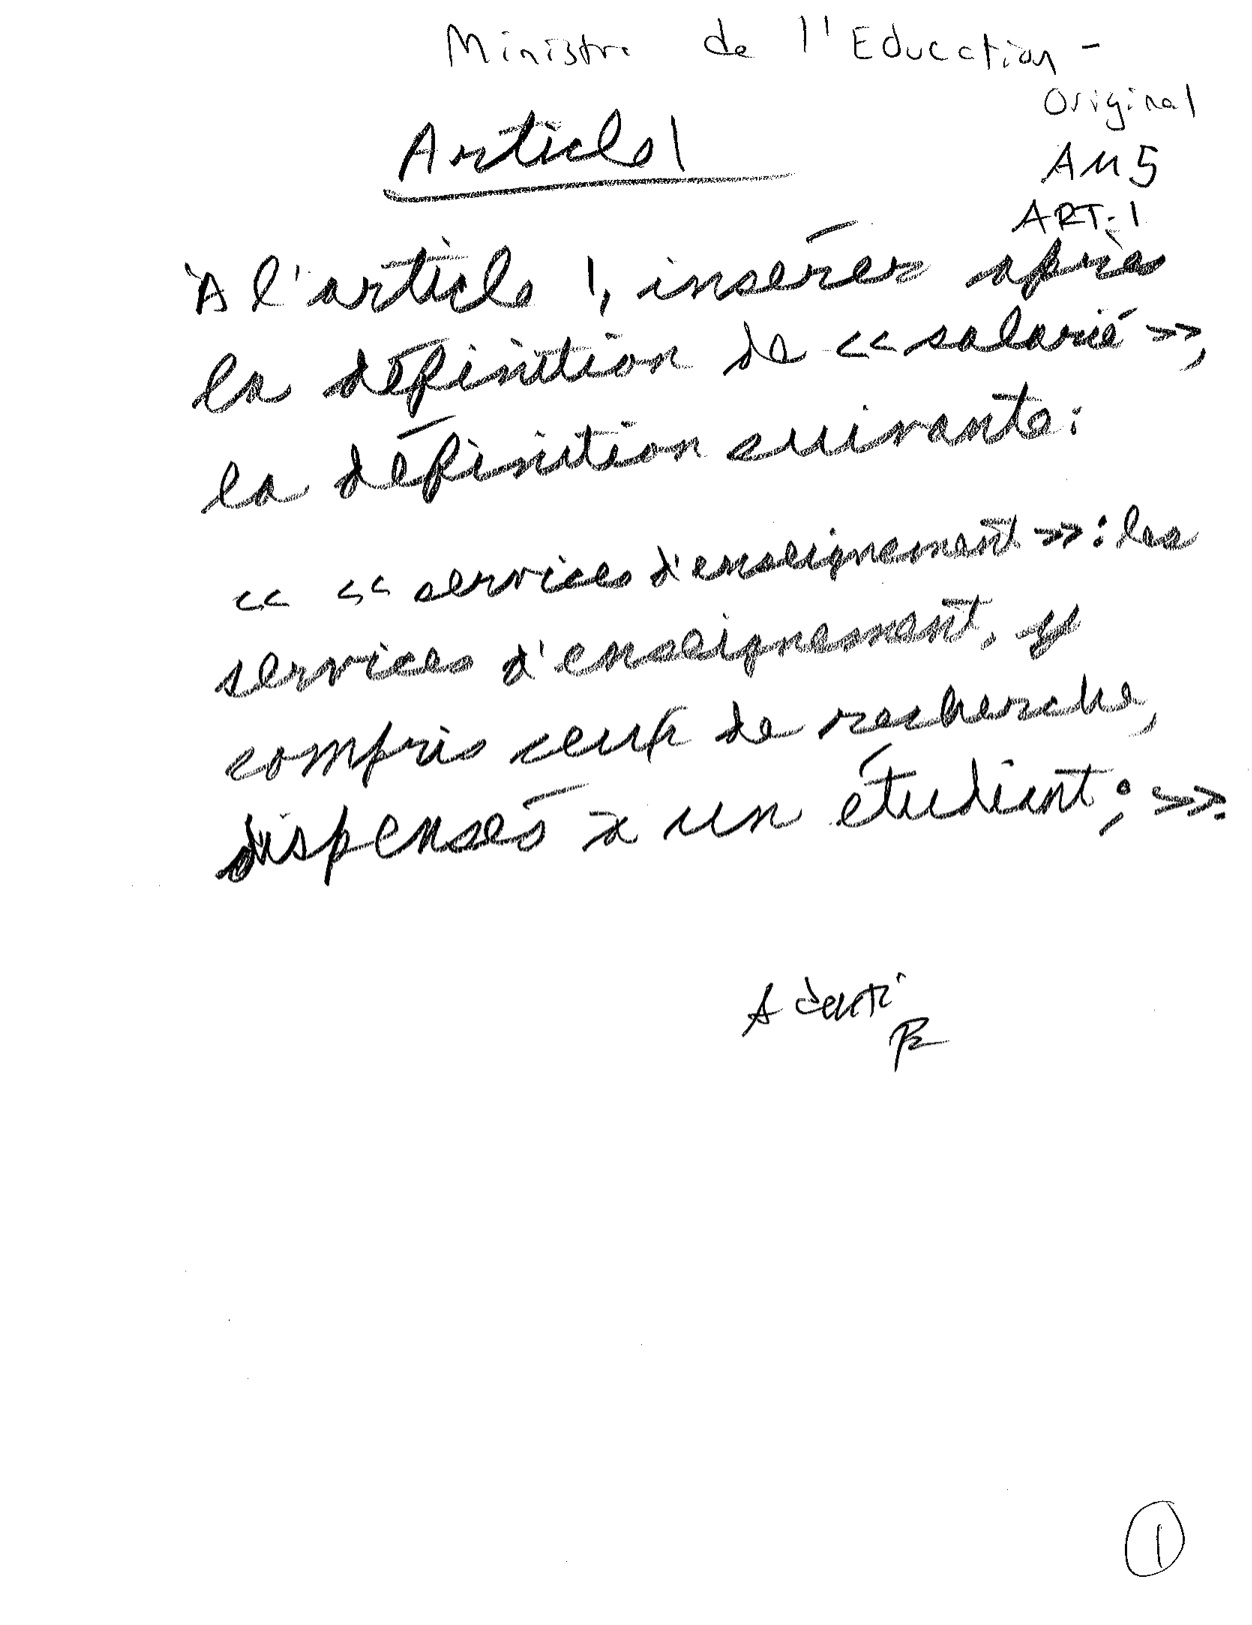 Ministre de l'Education -
Original
Article 1
AM 5
ART. 1
À l'article 1, insérer après
la définition de << salarié >>,
la définition suivante:
<< << services d'enseignement >> : les
services d'enseignement, y
compris ceux de recherche,
dispensés à un étudiant; >>.
Adopté
1